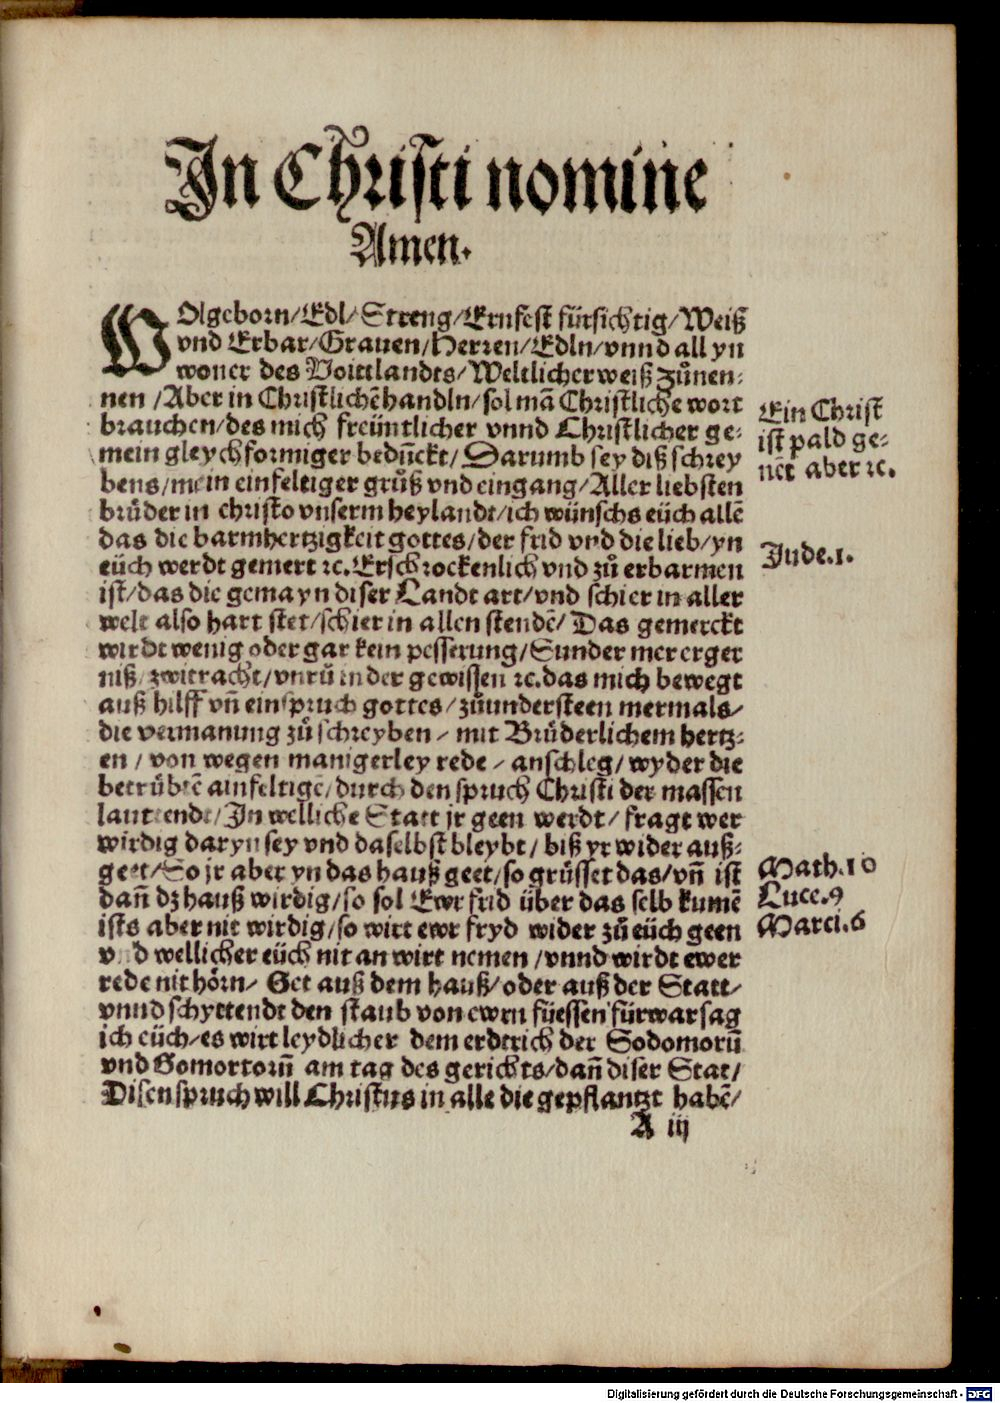 In Christi nomine
Amen.
WOlgeborn/Edl/Streng/Ernfest fürsichtig/Weiß
vnd Erbar/Grauen/Herren/Edln/vnnd all yn
woner des Voittlandts/Weltlicher weiß zůnen-
nen/Aber in Christlichē handln/sol mā Christliche wort
brauchen/des mich freüntlicher vnnd Christlicher ge-
mein gleychformiger bedūckt/Darumb sey diß schrey
bens/mein einfeltiger grůß vnd eingang/Aller liebsten
brůder in christo vnserm heylandt/ich wünschs eüch allē
das die barmhertzigkeit gottes/der frid vnd die lieb/yn
eüch werdt gemert ꝛc. Erschrockenlich vnd zů erbarmen
ist/das die gemayn diser Landt art/vnd schier in aller
welt also hart stet/schier in allen stendē/Das gemerckt
wirdt wenig oder gar kein pesserung/Sunder mer erger
niß/zwitracht/vnrů in der gewissen ꝛc. das mich bewegt
auß hilff vñ einspruch gottes/zůundersteen mermals/
die vermanung zů schreyben/mit Brůderlichem hertz-
en/von wegen manigerley rede/anschleg/wyder die
betrůbtē ainfeltigē/durch den spruch Christi der massen
lauttendt/In welliche Statt jr geen werdt/fragt wer
wirdig daryn sey vnd daselbst bleybt/biß yr wider auß-
geet/So jr aber yn das hauß geet/so grüsset das/vñ ist
dañ dz hauß wirdig/so sol Ewr frid über das selb kumē
ists aber nit wirdig/so wirt ewr fryd wider zů eüch geen
vnd wellicher eüch nit an wirt nemen/vnnd wirdt ewer
rede nit hörn/Get auß dem hauß/oder auß der Statt/
vnnd schyttendt den staub von ewrn füessen fürwar sag
ich eüch/es wirt leydlicher dem erdtrich der Sodomorū
vnd Gomorrorū am tag des gerichts/dañ diser Stat/
Disen spruch will Christus in alle die gepflantzt habē/
A iij
Ein Christ
ist pald ge-
nēt aber ꝛc.
Jude.1.
Math.10
Luce.9
Marci.6
Digitalisierung gefördert durch die Deutsche Forschungsgemeinschaft - DFG